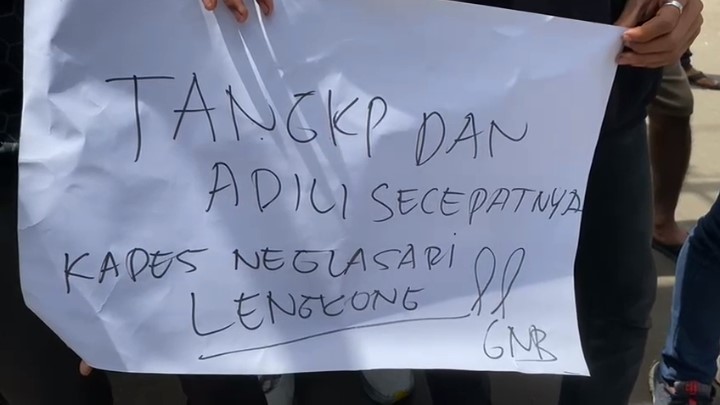 TANGKP DAN
ADILI SECEPATNYA
KADES NEGLASARI
LENGKONG !!
GMB